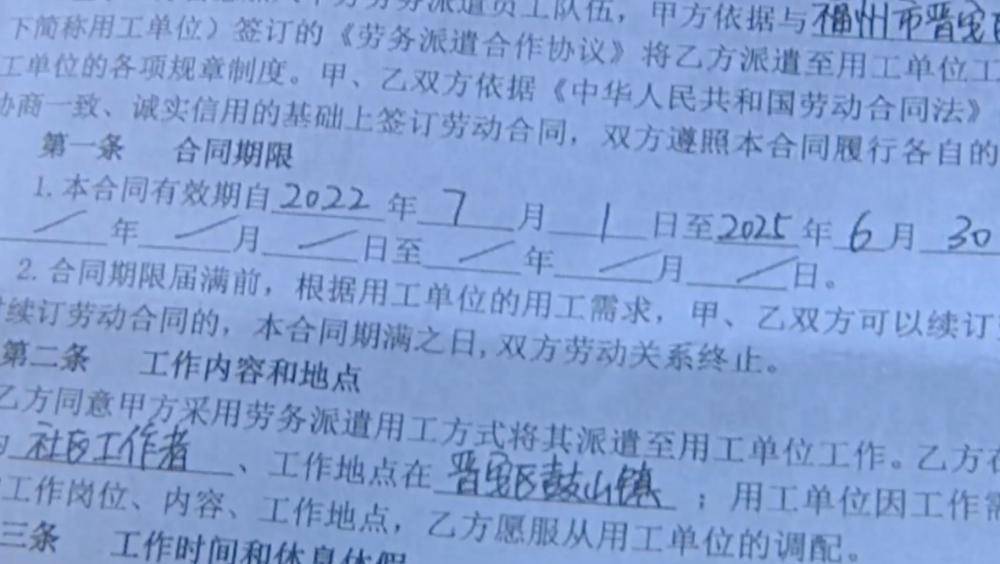 劳务派遣员工队伍，甲方依据与福州市晋安
下简称用工单位）签订的《劳务派遣合作协议》将乙方派遣至用工单位工
工单位的各项规章制度。甲、乙双方依据《中华人民共和国劳动合同法》
协商一致、诚实信用的基础上签订劳动合同，双方遵照本合同履行各自的
第一条 合同期限
1.本合同有效期自2022年7月1日至2025年6月30
/年/月/日至/年/月/日。
2.合同期限届满前，根据用工单位的用工需求，甲、乙双方可以续订
续订劳动合同的，本合同期满之日,双方劳动关系终止。
第二条 工作内容和地点
乙方同意甲方采用劳务派遣用工方式将其派遣至用工单位工作。乙方在
社区工作者、工作地点在晋安区鼓山镇；用工单位因工作需
工作岗位、内容、工作地点，乙方愿服从用工单位的调配。
三条 工作时间和休息休假